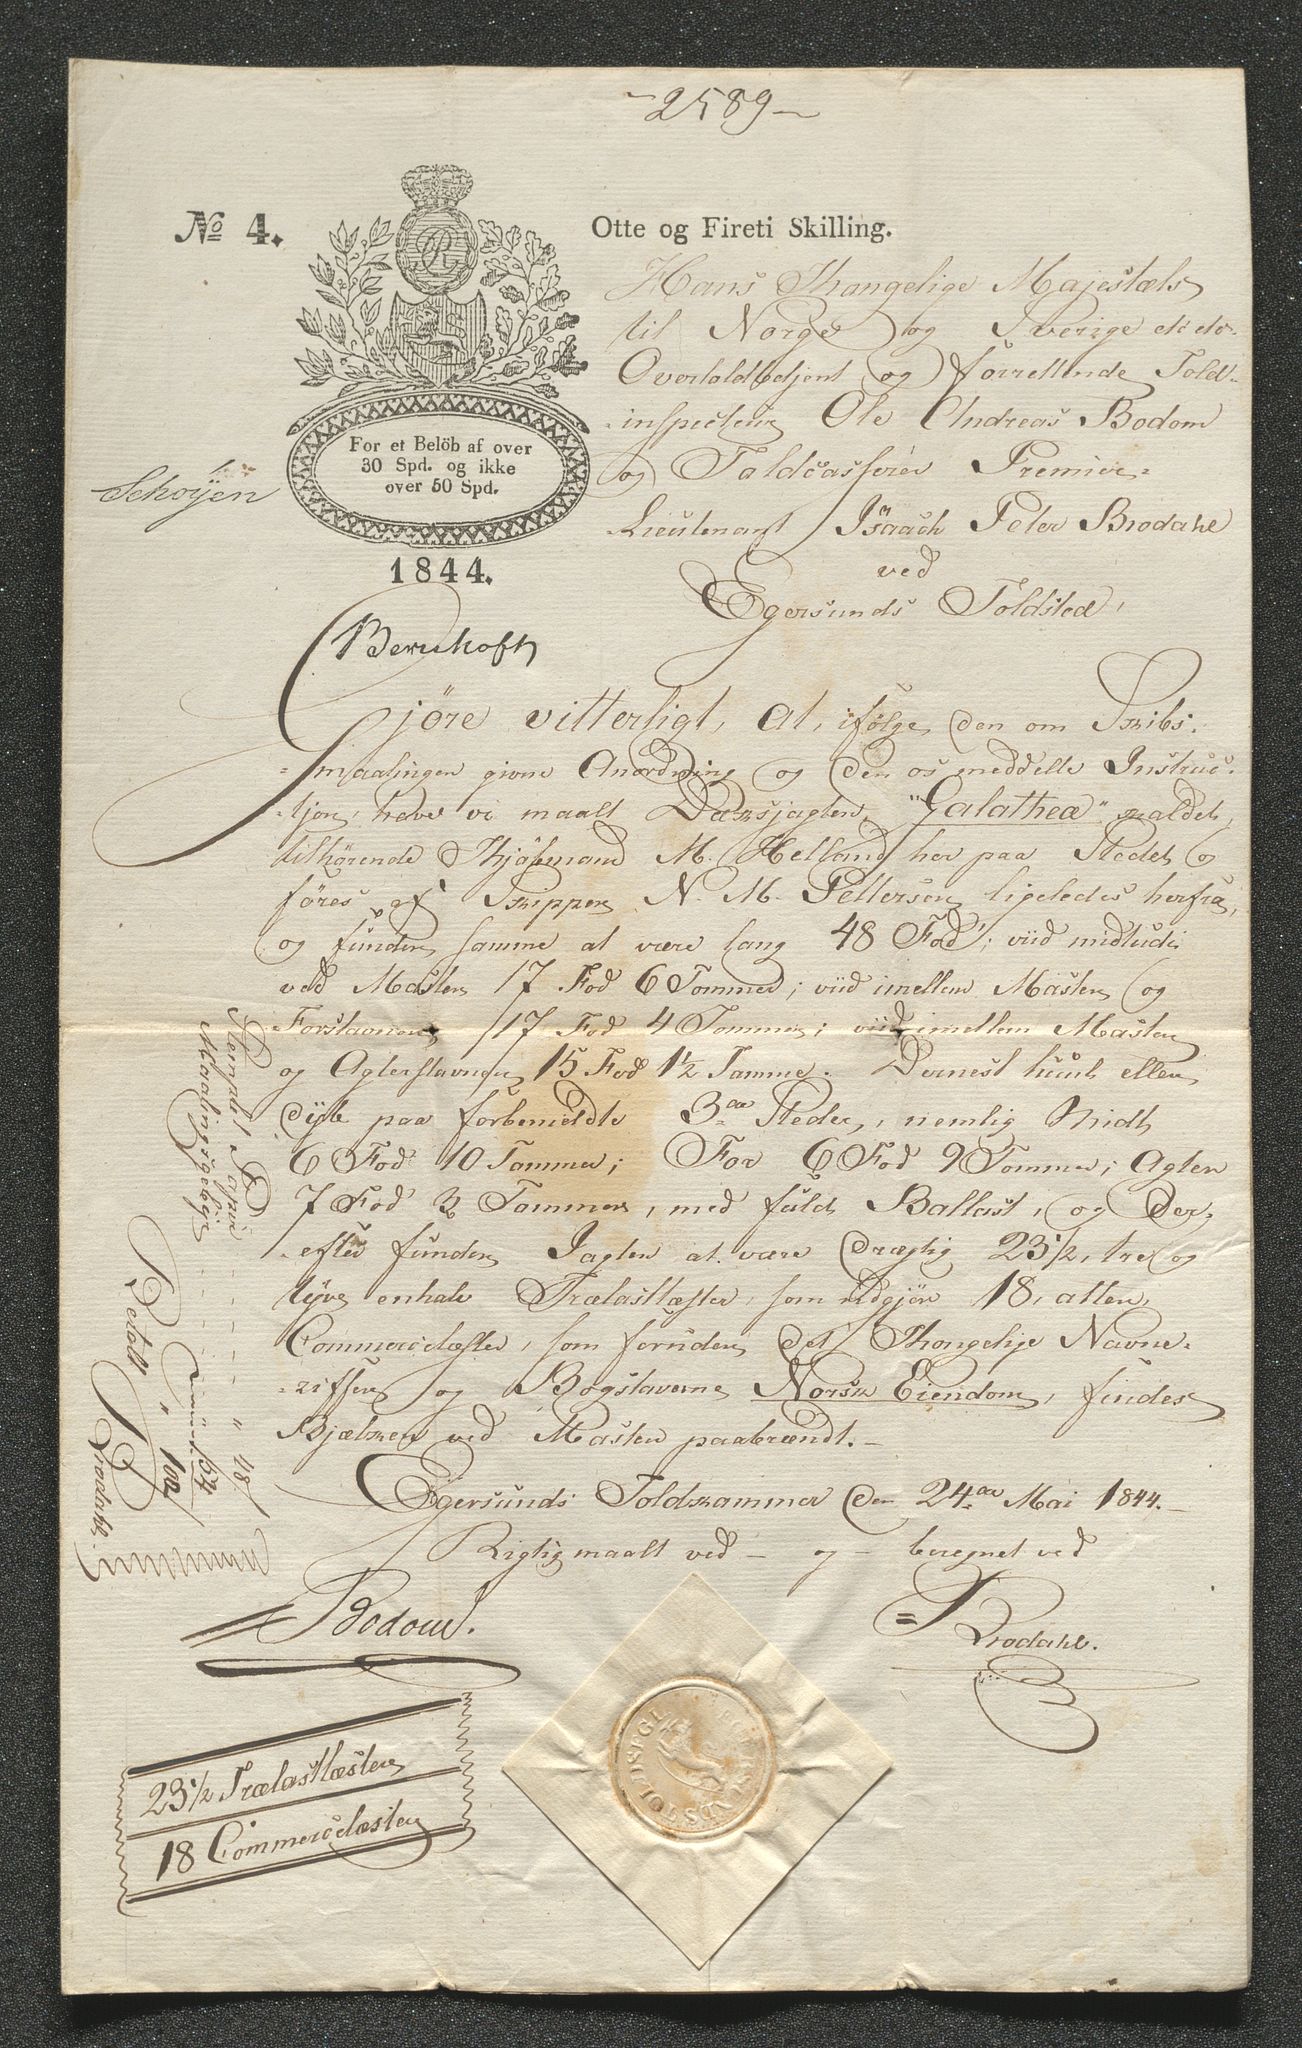 -2589-
No 4.
Otte og Fireti Skilling.
Hans Kongelige Majestæts
til Norge og Sverige etc etc
Overtoldbetjent og forrettende Told-
inspecteur Ole Andreas Bodom
og Toldcasserer Premier-
Lieutenant Isaach Peter Brodahl
ved
Egersunds Toldsted,
For et Belöb af over
30 Spd. og ikke
over 50 Spd.
1844.
Schoijen
Bernhoft
Gjöre vitterligt, at, ifölge den om Skibs-
maalingen givne Anordning og den os meddelte Instruc-
tjon, have vi maalt Dæksjagten "Galathea" kaldet,
tilhörende Kjöbmand M. Helland her paa Stedet og
föres af Skipper N. M. Pettersen ligeledes herfra,
og funden samme at være lang 48 Fod; viid midtudi
ved Masten 17 Fod 6 Tommer; viid imellem Masten og
Forstavnen 17 Fod 4 Tommer; viid imellem Masten
og Agterstavnen 15 Fod 1½ Tomme. Dernest huul eller
dyb paa forbemeldte 3de Steder, nemlig Midt
6 Fod 10 Tommer; For 6 Fod 9 Tommer; Agter
7 Fod 3 Tommer, med fuld Ballast, og der-
efter funden Jagten at være drægtig 23½, tre og
tyve enhalv Trælastlæster, som udgjör 18, atten,
Commerclæster, som foruden det Kongelige Navne-
ziffer og Bogstaverne Norsk Eiendom, findes
Bjælken ved Masten paabrændt.-
Egersunds Toldkammer den 24de Mai 1844.-
Rigtig maalt ved - og - beregnet ved
Bodom.
Brodahl.
23½ Trælastlæster
18 Commerclæster
Stemplet Papir " 48
Maalingsgebyr 54
" 102
Betalt Brodahl.
EGERSUNDS TOLDSEGL